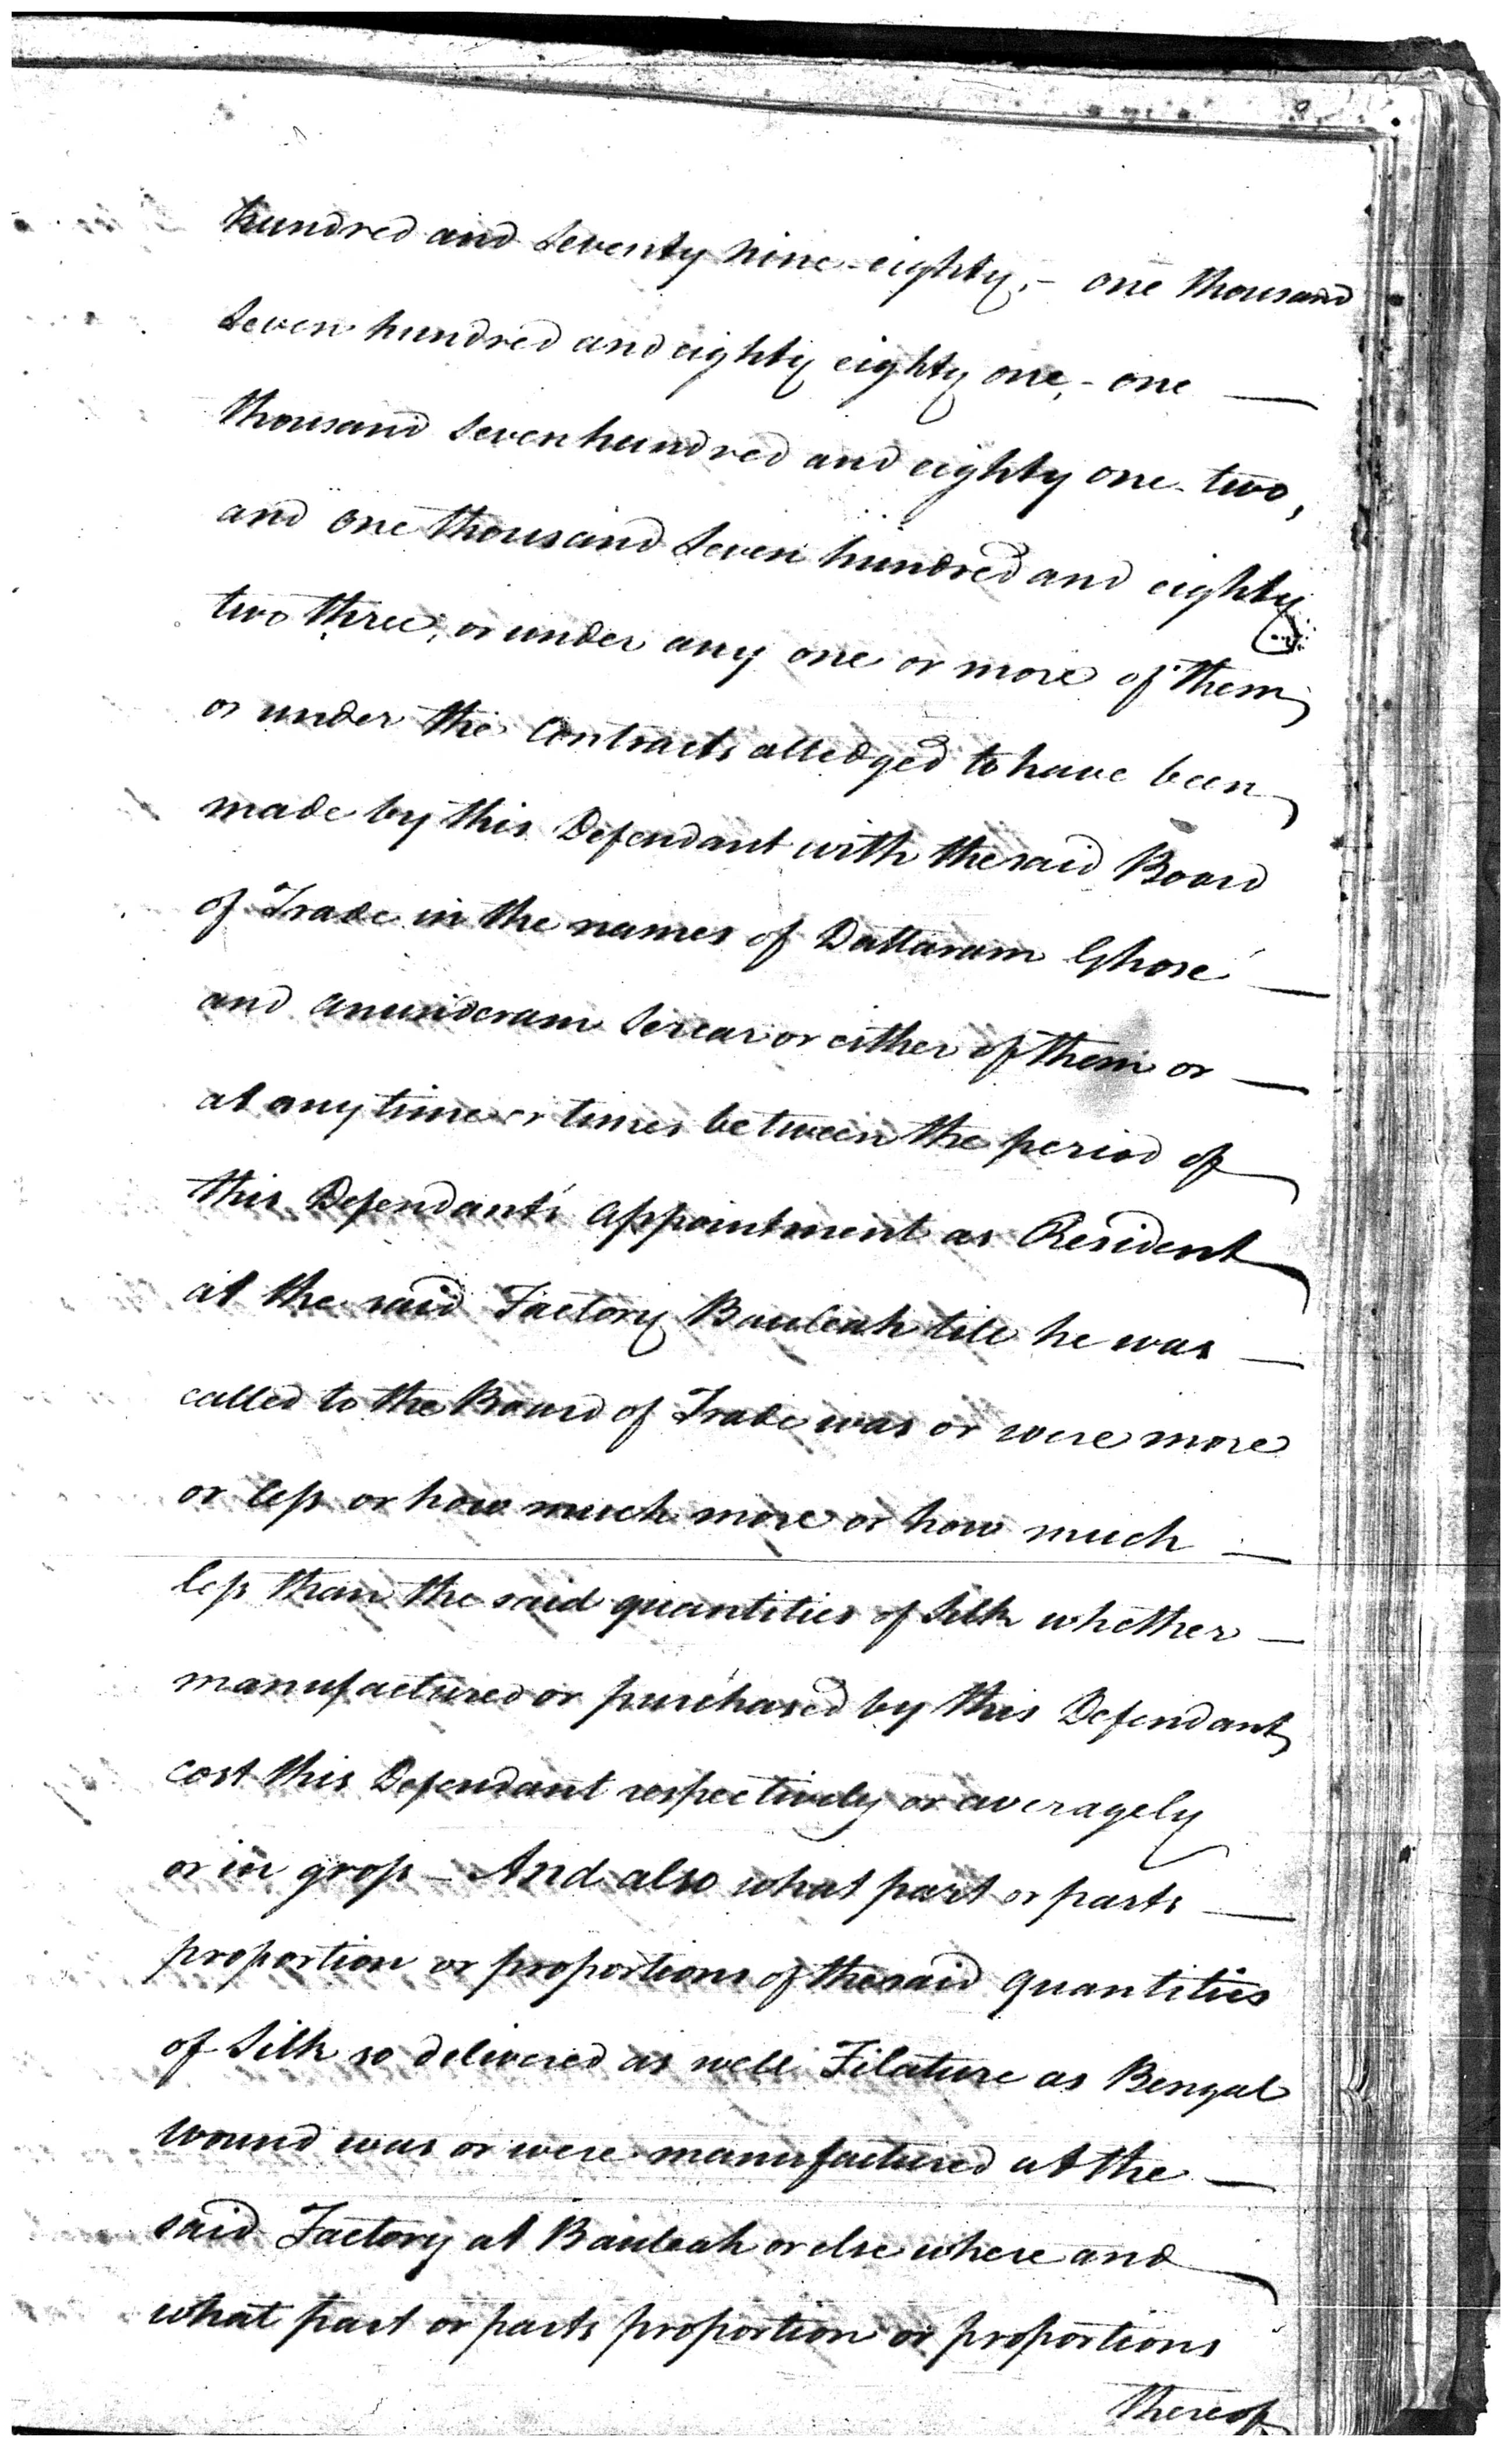 hundred and Seventy nine-eighty, - one thousand
Seven hundred and eighty eighty one, - one —
thousand Seven hundred and eighty one - two,
and one thousand Seven hundred and eighty
two three, or under any one or more of them
or under the Contracts alledged to have been
made by this Defendant with the said Board
of Trade in the names of Dattaram Ghose —
and Anunderam Sercar or either of them or —
at any time or times between the period of
this Defendant's appointment as Resident
at the said Factory Bauleah till he was —
called to the Board of Trade was or were more
or less or how much more or how much —
less than the said quantities of Silk whether —
manufactured or purchased by this Defendant
cost this Defendant respectively or averagely
or in gross - And also what part or parts —
proportion or proportions of the said quantities
of Silk so delivered as well Filature as Bengal
wound was or were manufactured at the —
said Factory at Bauleah or else where and
what part or parts proportion or proportions
thereof